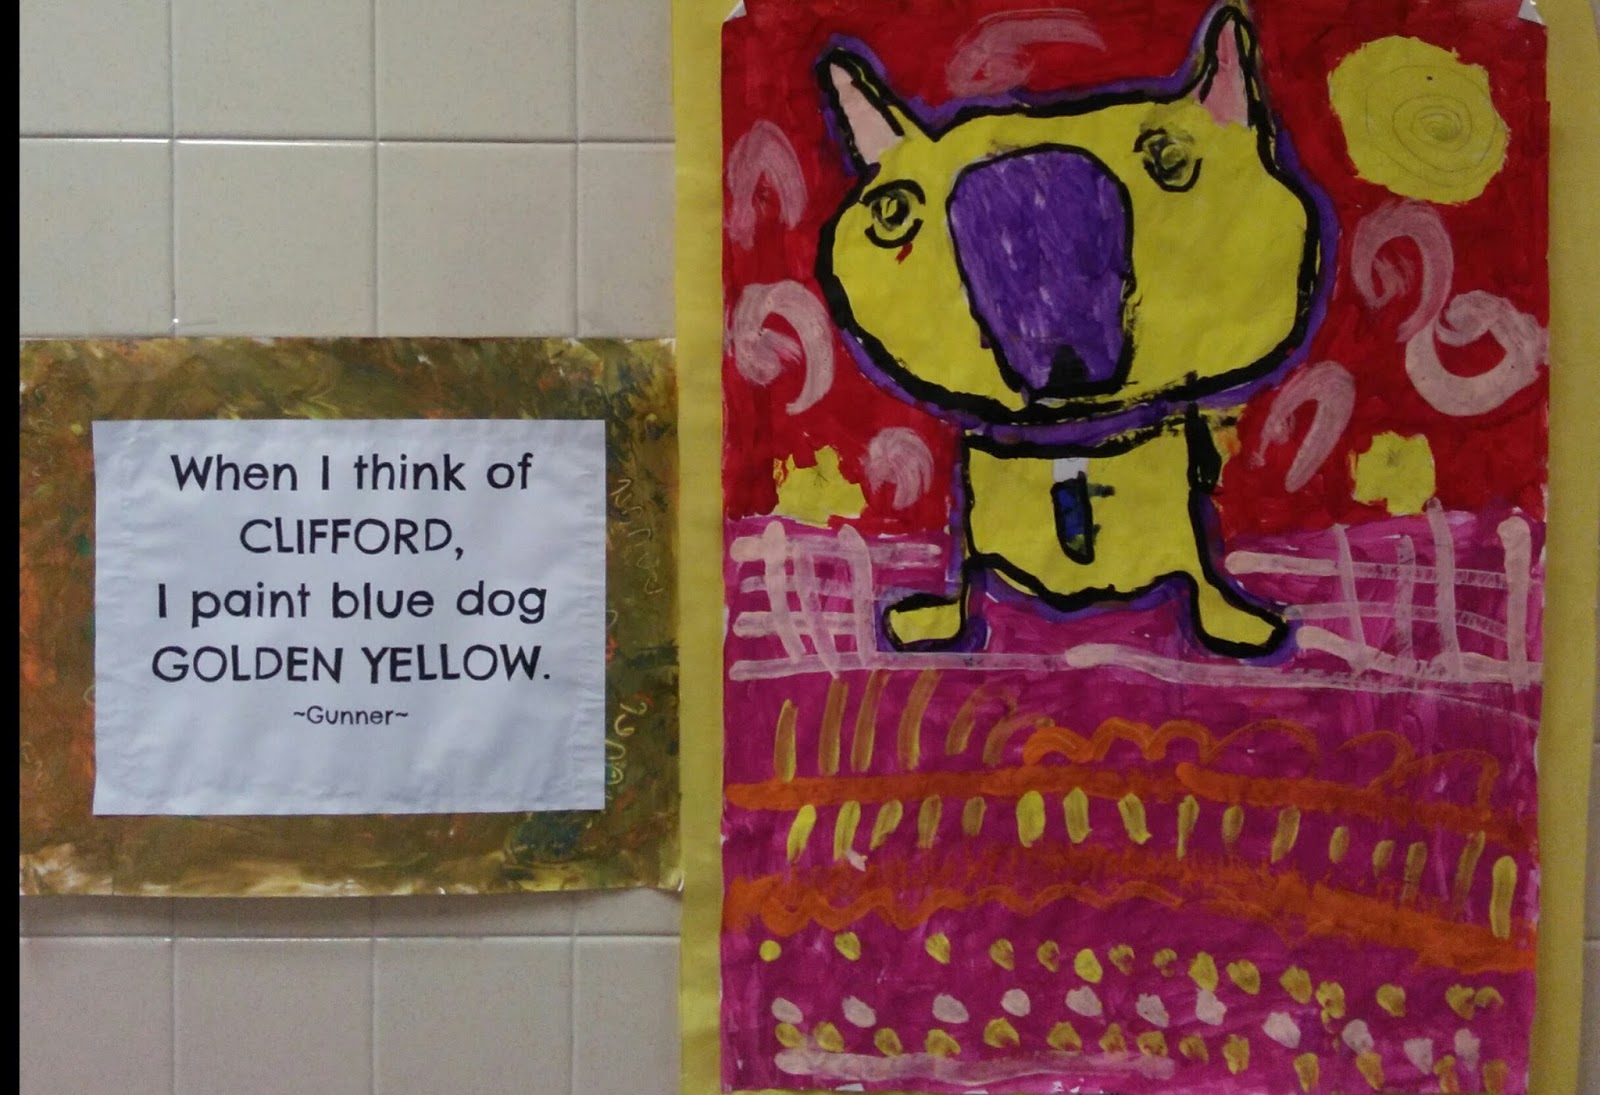 When I think of
CLIFFORD,
I paint blue dog
GOLDEN YELLOW.
~Gunner~